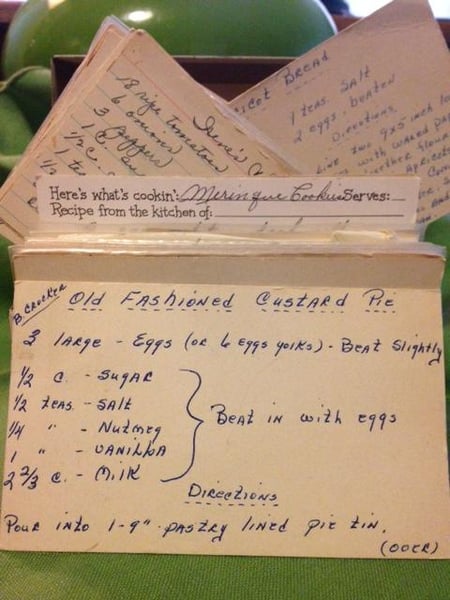 Irene's
18 ripe tomatoes
6 onions
3 peppers
1/2 C.
1 C.
1 te
COT BREAD
1 teas. SALT
2 eggs, beaten
DIRECTIONS
Line two 9x5 inch lo
with waxed pap
Here's what's cookin': Meringue Cookies Serves:
Recipe from the kitchen of:
B. CROCKER
OLD FASHIONED CUSTARD PIE
3 LARGE - EGGS (OR 6 EGGS YOLKS) - BEAT SLIGHTLY
1/2 C. - SUGAR
1/2 TEAS. - SALT
1/4 " - NUTMEG
1 " - VANILLA
2 2/3 C. - MILK
BEAT IN WITH EGGS
DIRECTIONS
POUR INTO 1-9" PASTRY LINED PIE TIN.
(OVER)